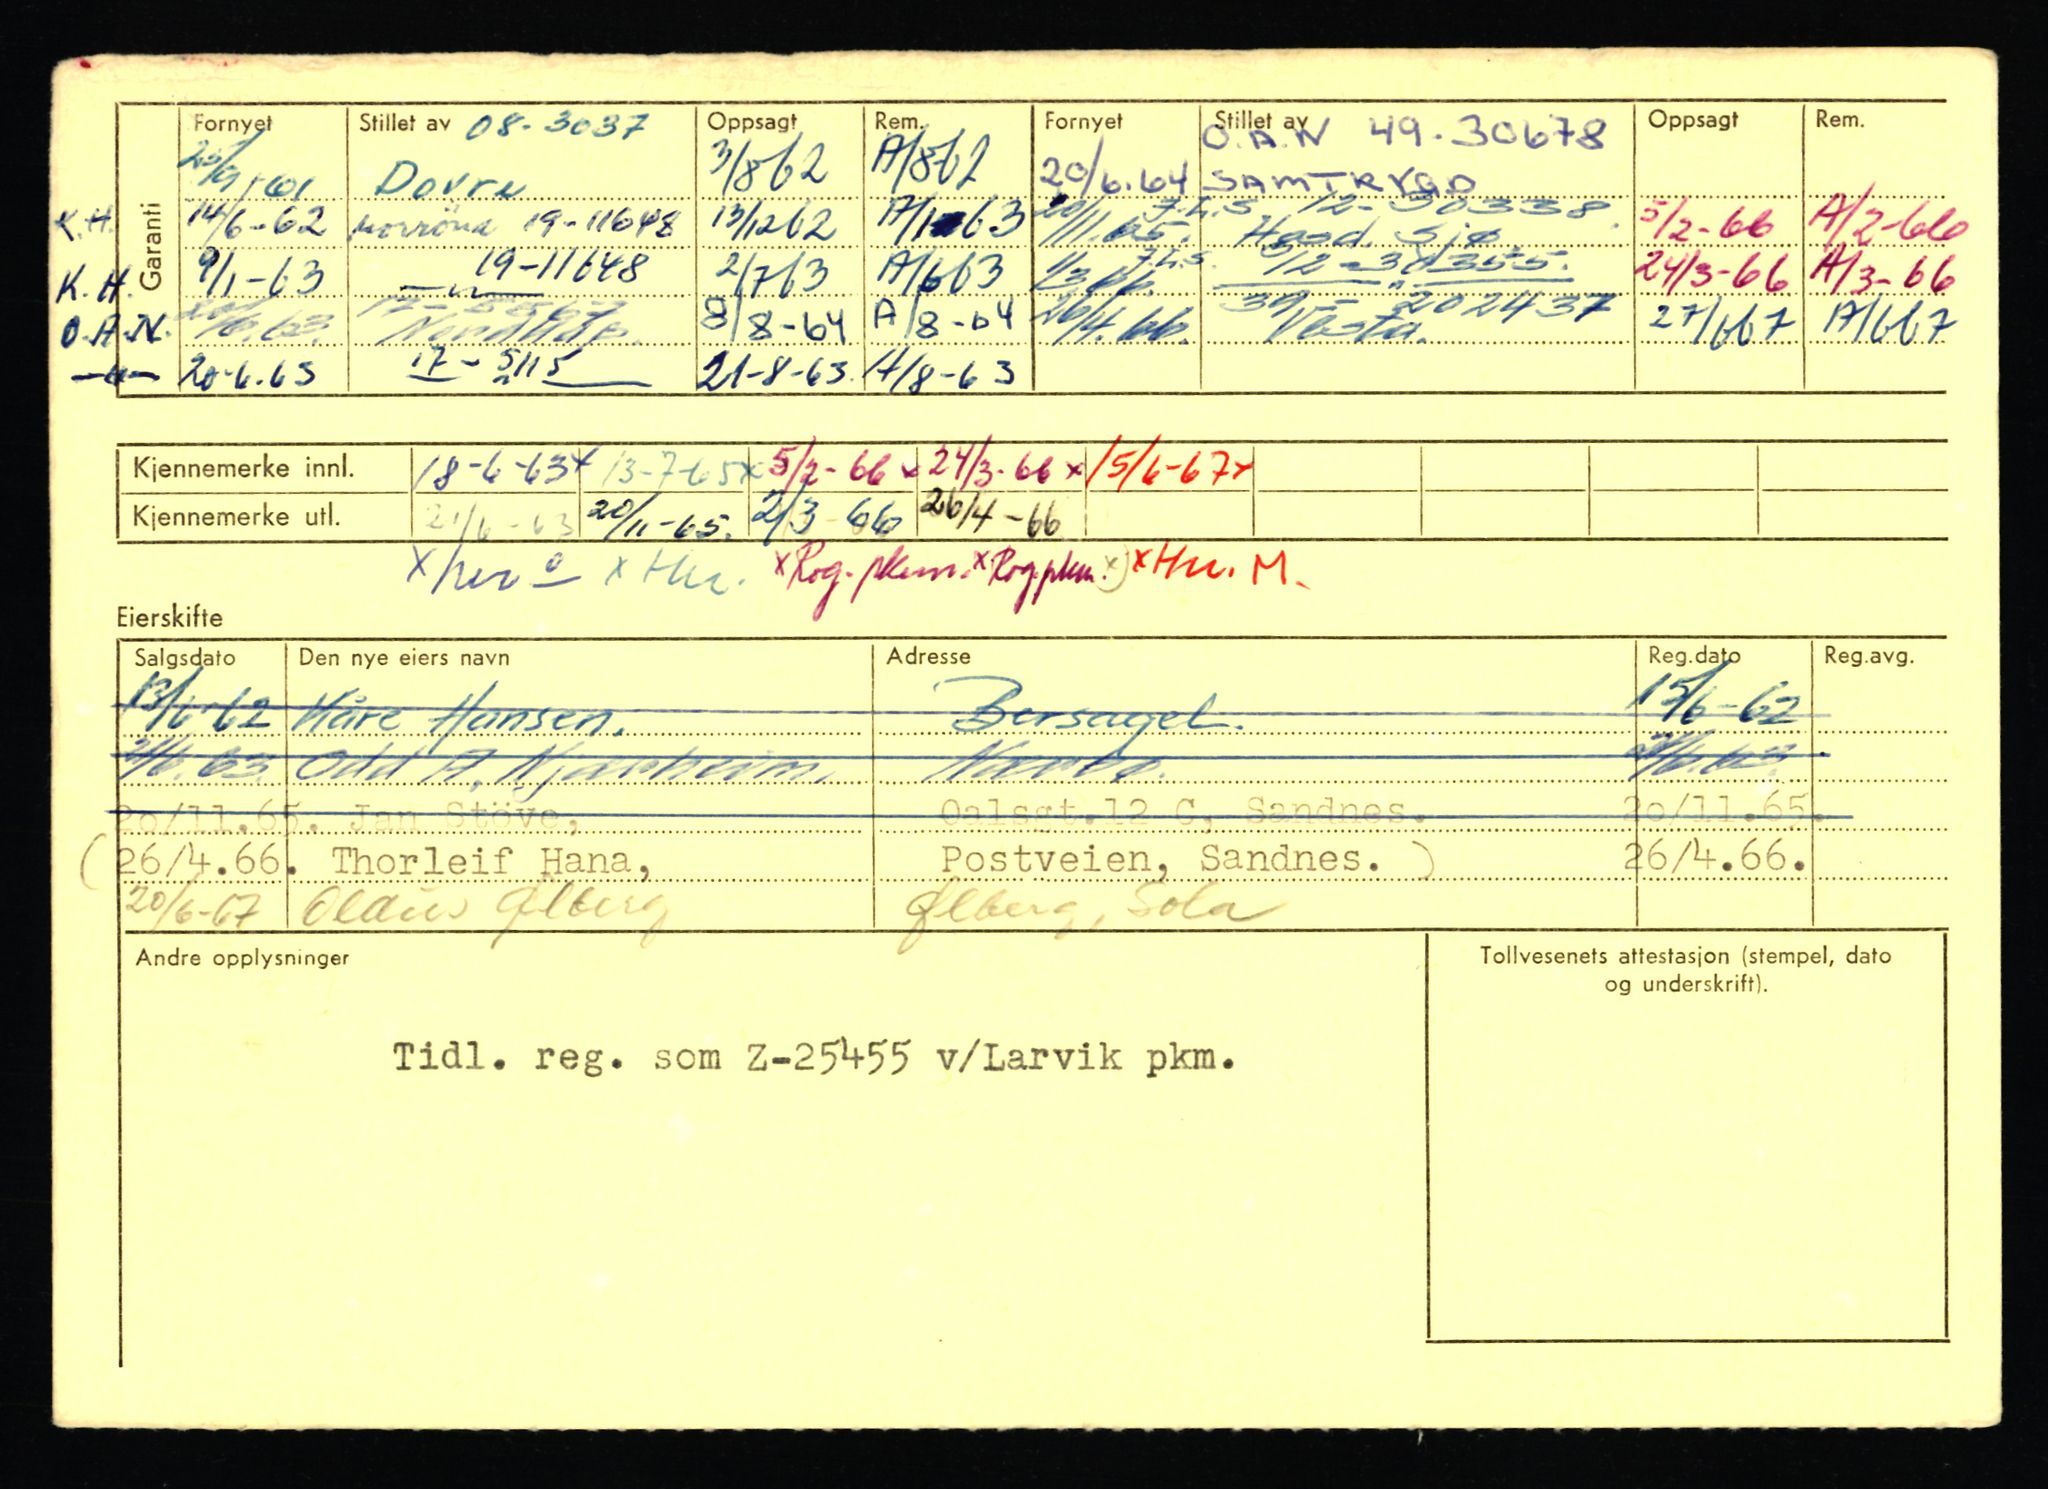 Garanti
Fornyet Stillet av 08-3037 Oppsagt Rem. Fornyet Stillet av O.A.N 49-30678 Oppsagt Rem.
Dovre 3/8 62 A/8 62 20/6.64 SAMTRYGD
K.H. 14/6-62 19-11648 13/12 62 A/1 63 20/11.65. J.L.S. 12-30338. Hasd. Sjø 5/2-66 A/2-66
K.H. 9/1-63 19-11648 2/7 63 A/6 63 J.L.S. 12-30355. 24/3-66 A/3-66
O.A.N. 8/8-64 A/8-64 26/4.66. 39-202437 Vesta. 27/6 67 A/6 67
20-6.63 17-5115 21-8-63. A/8-63
Kjennemerke innl. 18-6-63x 13-7-65x 5/2-66 x 24/3-66 x 15/6-67x
Kjennemerke utl. 21/6-63 20/11-65. 2/3-66 26/4-66
x her x Hu. x Rog. pkm. x Rog. pkm. x) x Hu. M.
Eierskifte
Salgsdato Den nye eiers navn Adresse Reg.dato Reg.avg.
13/6-62 Kåre Hansen. Bersagel. 15/6-62
21/6.63. Odd A. Njærheim. Nærbø. 21/6.63.
20/11.65. Jan Stöve, Oalsgt.12 C, Sandnes. 20/11.65.
(26/4.66. Thorleif Hana, Postveien, Sandnes. ) 26/4.66.
20/6-67 Olaus Ølberg Ølberg, Sola
Andre opplysninger
Tollvesenets attestasjon (stempel, dato
og underskrift).
Tidl. reg. som Z-25455 v/Larvik pkm.